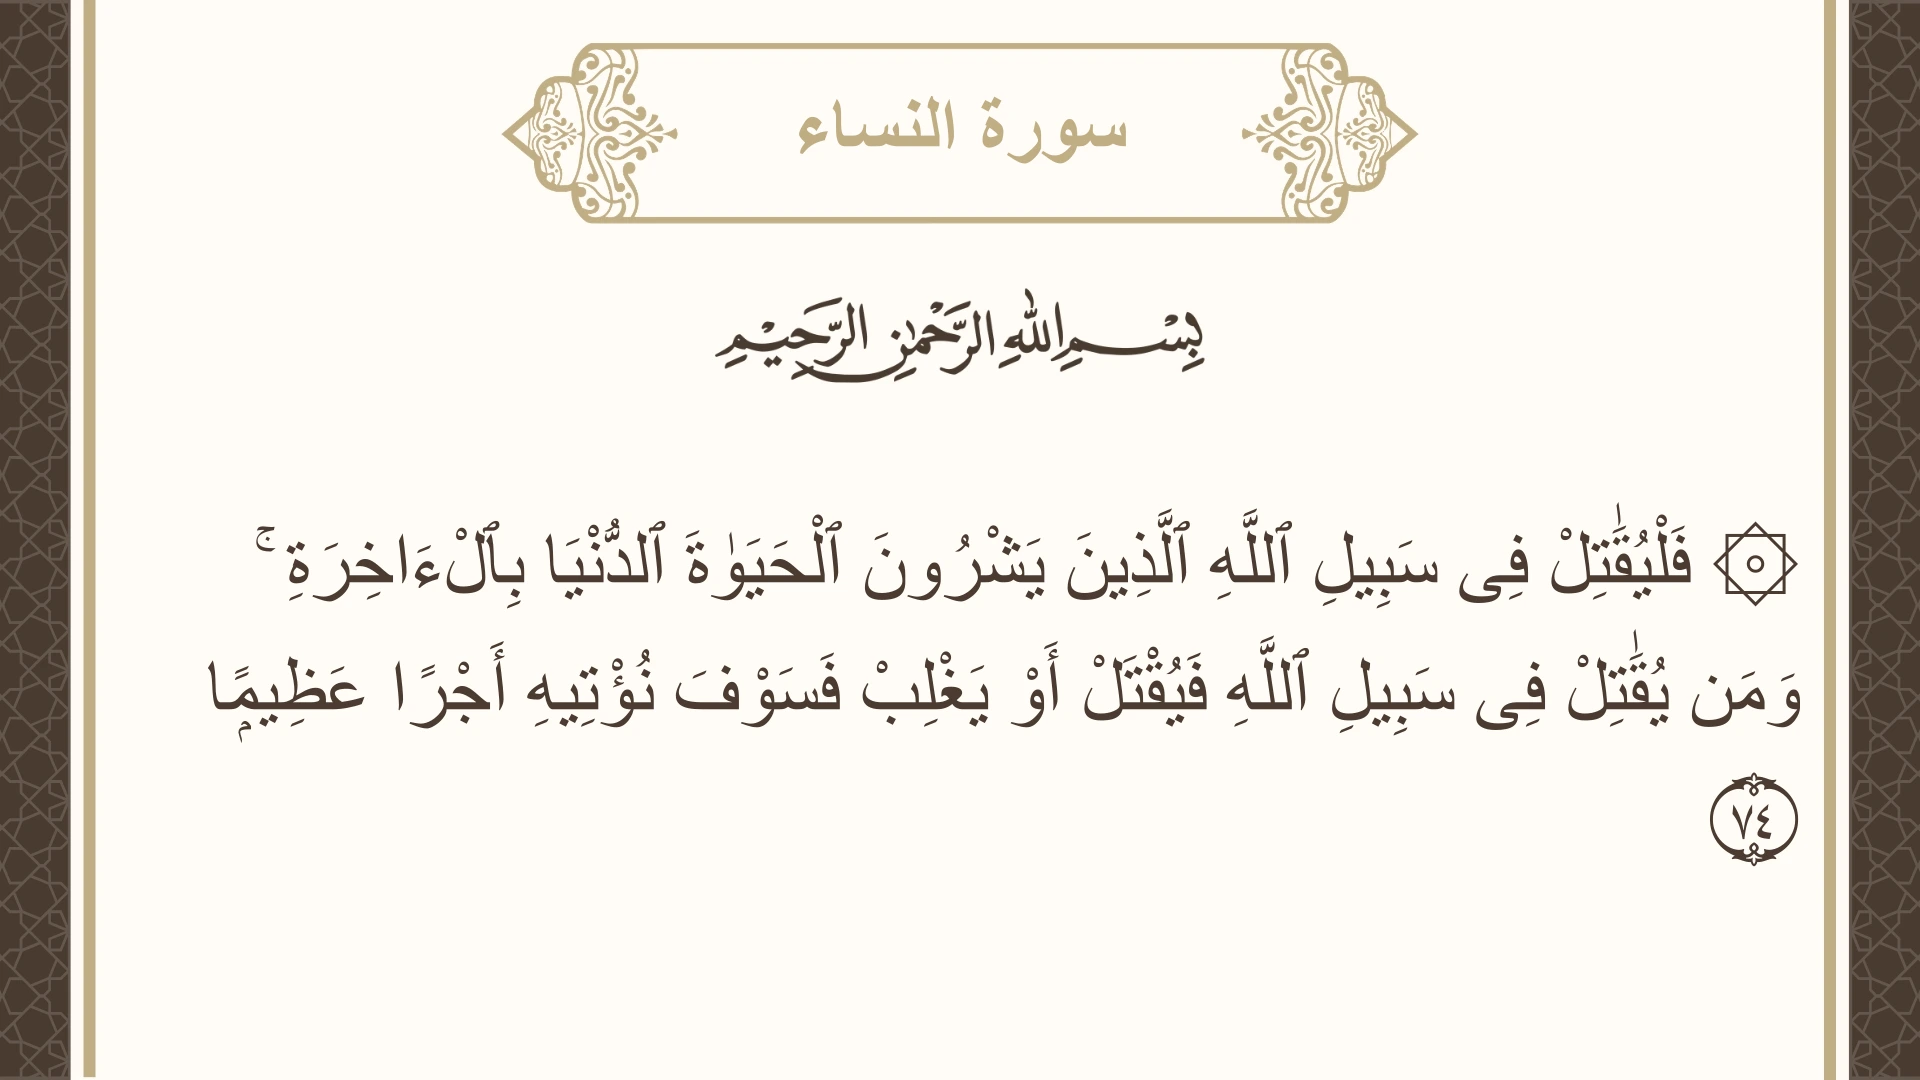 سورة النساء
بِسْمِ اللهِ الرَّحْمٰنِ الرَّحِيْمِ
۞ فَلْيُقَٰتِلْ فِى سَبِيلِ ٱللَّهِ ٱلَّذِينَ يَشْرُونَ ٱلْحَيَوٰةَ ٱلدُّنْيَا بِٱلْءَاخِرَةِ ۚ
وَمَن يُقَٰتِلْ فِى سَبِيلِ ٱللَّهِ فَيُقْتَلْ أَوْ يَغْلِبْ فَسَوْفَ نُؤْتِيهِ أَجْرًا عَظِيمًۭا
٧٤